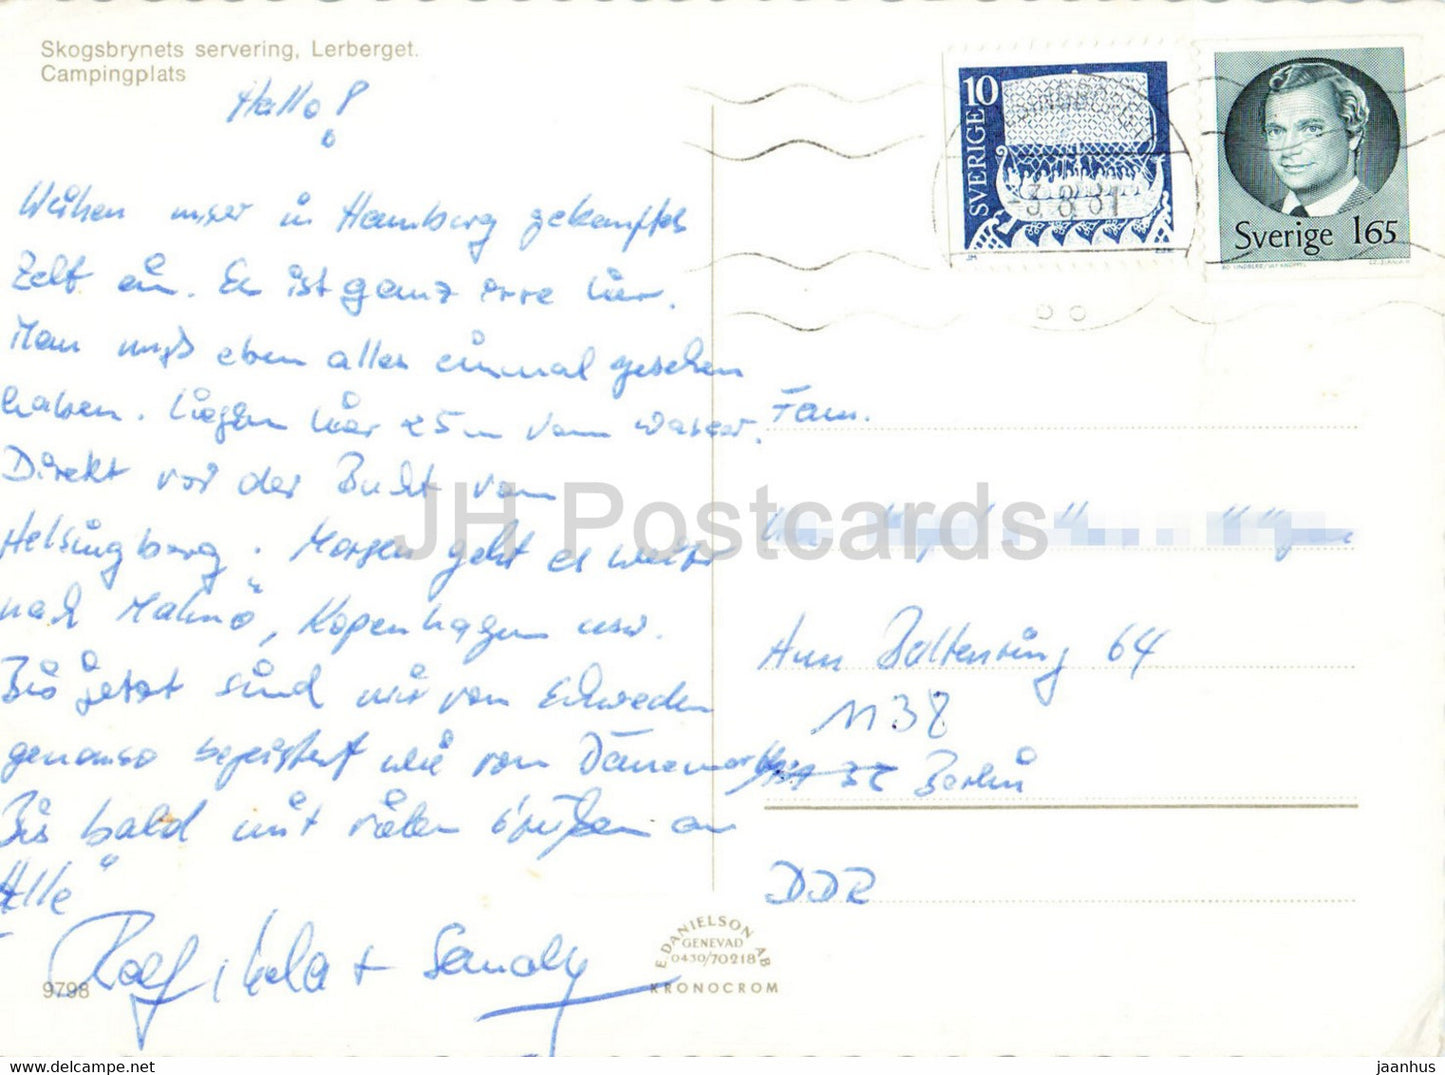 Skogsbrynets servering, Lerberget.
Campingplats
Hallo!
Weihen unser in Hamburg gekauftes
Zelt ein. Es ist ganz irre hier.
Man muß eben alles einmal gesehen
haben. Liegen hier 25m vom Wasser.
Direkt vor der Bucht von
Helsingborg. Morgen geht es weiter
nach Malmö, Kopenhagen usw.
Bis jetzt sind wir von Schweden
genauso begeistert wie von Dänemark.
Bis bald mit vielen Grüßen an
"Alle"
Rolf, + Sandy
9798
E. DANIELSON AB
GENEVAD
0430/70218
KRONOCROM
10
SVERIGE
-3.8.81
Sverige 165
Fam.
Am Baltenring 64
1138
Berlin
DDR
JH Postcards
jaanhus